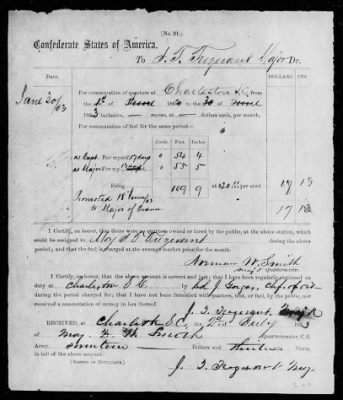 (No. 21.)
Confederate States of America,
To J. T. Trezevant Major Dr.
DOLLARS CTS
June 30/63
For commutation of quarters at Charleston S.C. for
the 1st of June 1863 to 30 of June
1863 inclusive, — rooms, at — dollars each, per month.
For commutation of fuel for the same period—
as Capt. For myself 17 days 0 54 4
as Major For 0 55 5
Being 109 9 at
17 13
Promoted 18 June/63
to Major of
17 13
I Certify, on honor, that there were no quarters owned or hired by the public, at the above station, which
could be assigned to Maj J T Trezevant during the above
period; and that the fuel is charged at the average market price for the month.
Norman W. Smith
Quartermaster.
I Certify, on honor, that the above account is correct and just; that I have been regularly stationed on
duty at Charleston S.C. by
during the period charged for; that I have not been furnished with quarters, rent, or fuel, by the public, nor received
a commutation of money in lieu thereof.
J. T. Trezevant
RECEIVED, at Charleston S.C. the of July 1863
of Maj. N W Smith Quartermaster, C.S.
Army, seventeen Dollars and thirteen Cents,
in full of the above account.
(SIGNED IN DUPLICATE.)
J. T. Trezevant Maj.